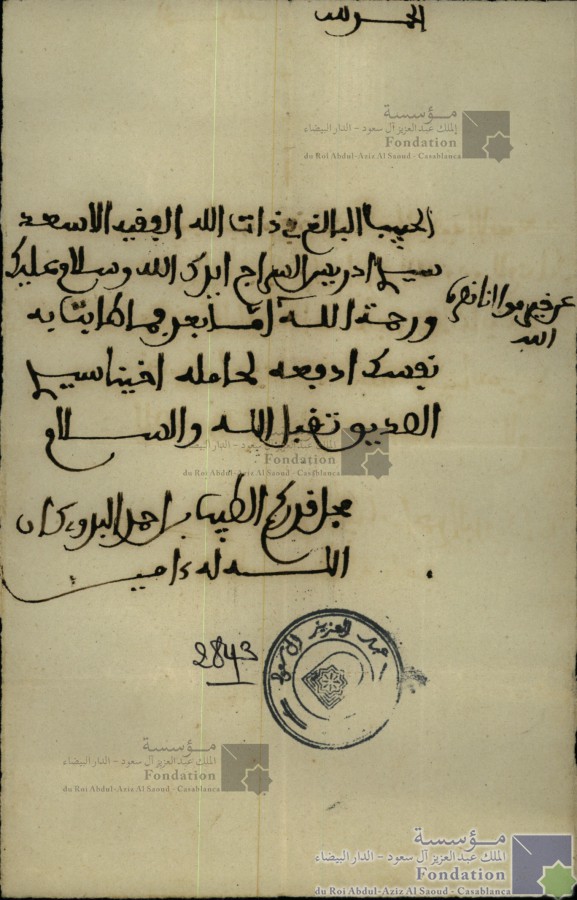 الحمد لله
مؤسسة
الملك عبد العزيز آل سعود - الدار البيضاء
Fondation
du Roi Abdul-Aziz Al Saoud - Casablanca
الحبيب البالغ في ذات الله الفقيه الاسعد
سيدي ادريس السراج امنك الله وسلام عليك
ورحمة الله اما بعد فما طابت به
نفسك ادفعه لحامله اخينا سيدي
الصديق تقبل الله والسلام
عن مولانا نصره
الله
مؤسسة
الملك عبد العزيز آل سعود - الدار البيضاء
Fondation
du Roi Abdul-Aziz Al Saoud - Casablanca
محل قدركم الطيب بن احمد كان
الله له ءامين
عبد العزيز ال سعود
2843
مؤسسة
الملك عبد العزيز آل سعود - الدار البيضاء
Fondation
du Roi Abdul-Aziz Al Saoud - Casablanca
مؤسسة
الملك عبد العزيز آل سعود - الدار البيضاء
Fondation
du Roi Abdul-Aziz Al Saoud - Casablanca